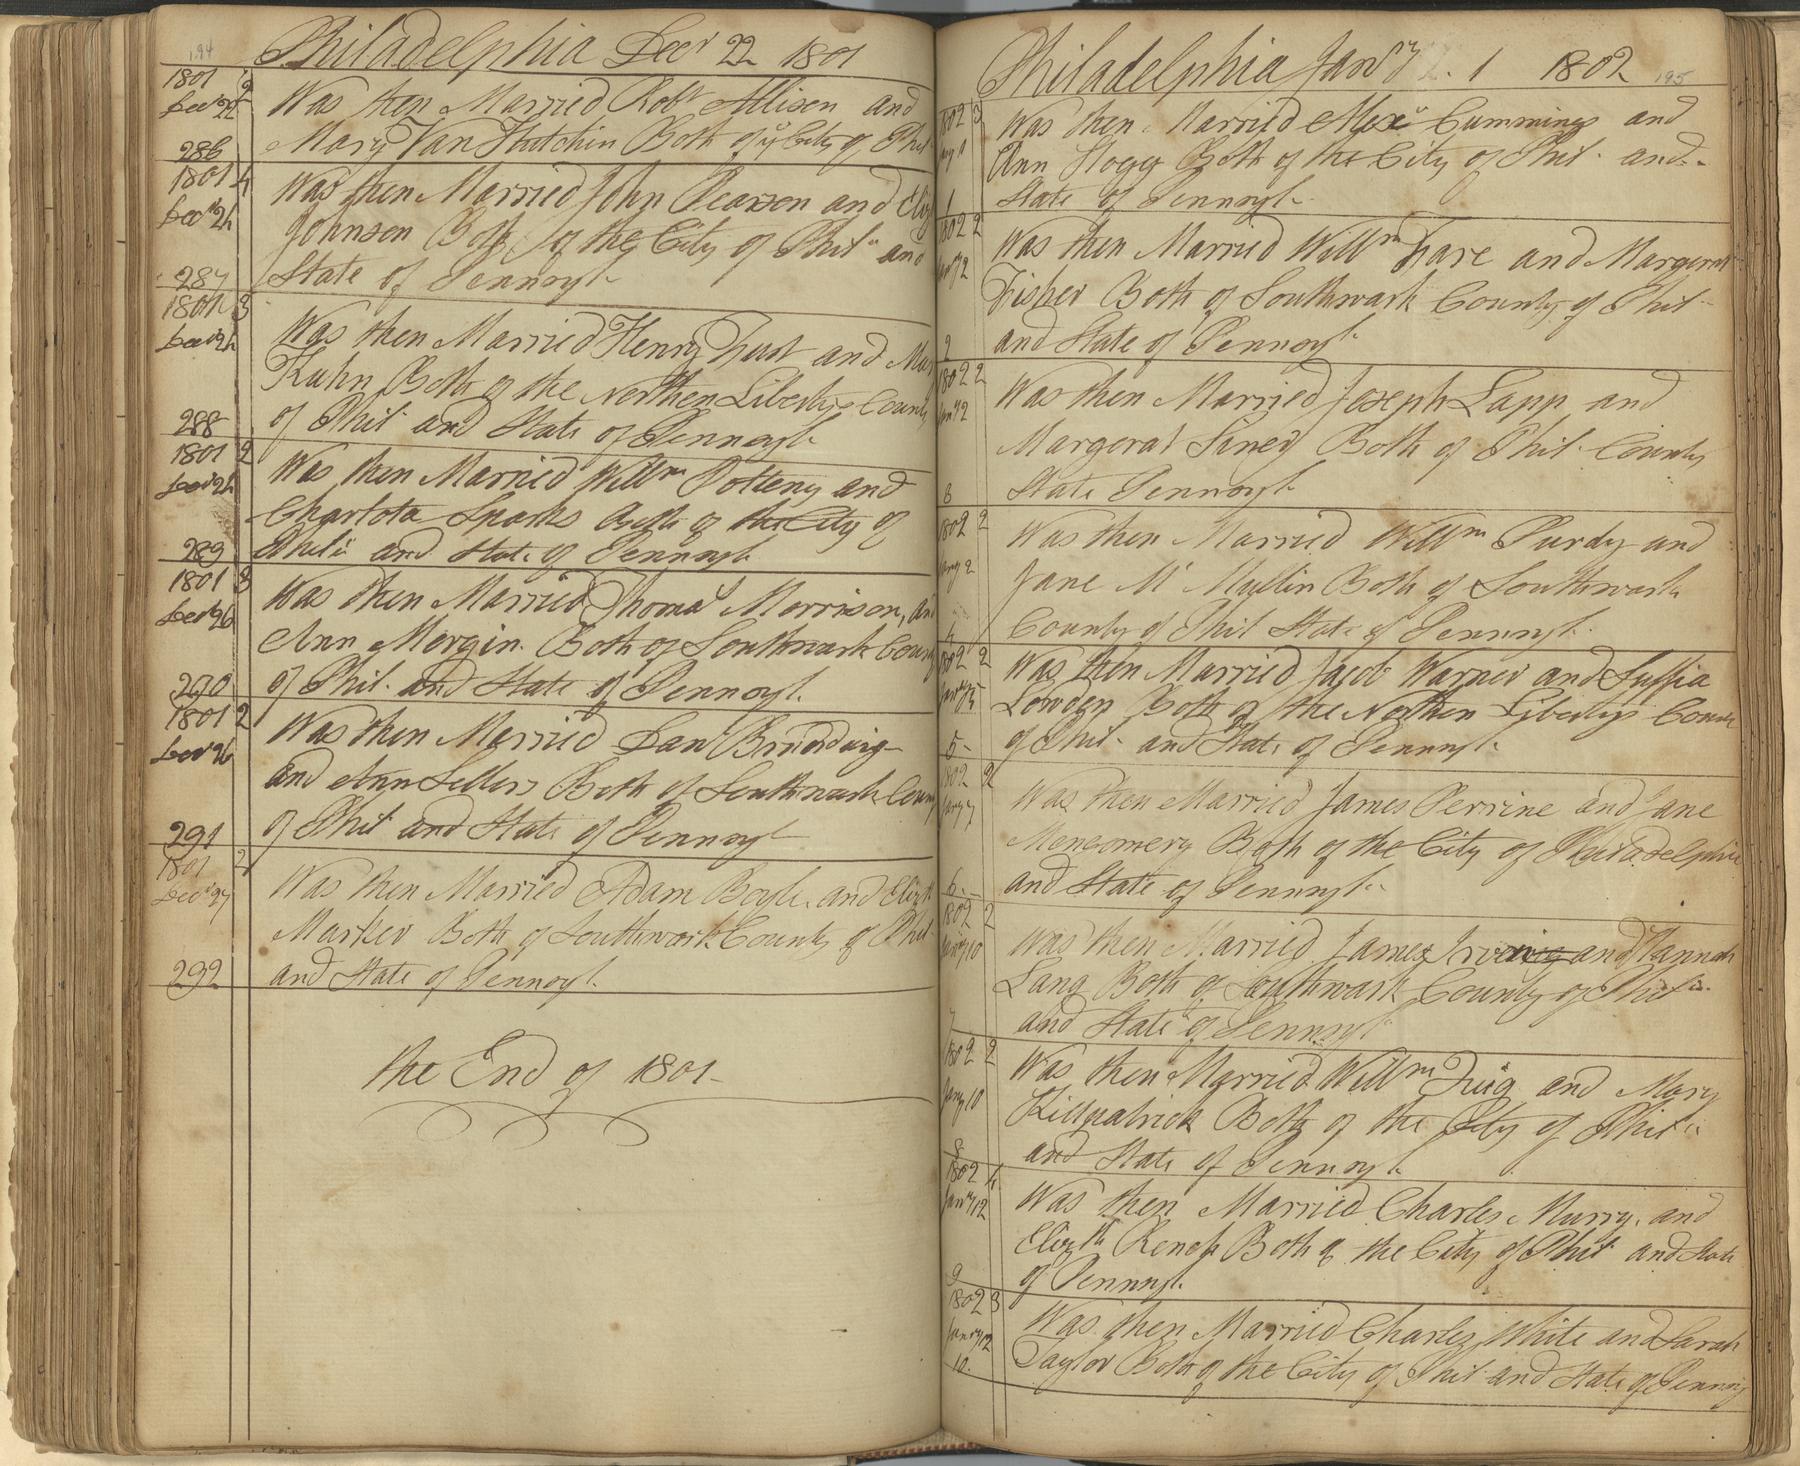 194
Philadelphia Decr 22 1801
1801 2
Decr 22
Was then Married Robt Allison and
Mary Van Hutchin Both of ye City of Phil
286
1801 4
Decr 24
Was then Married John Pearson and Eliz
Johnson Both of the City of Phila and
287
State of Pennsyl.
1801 3
Decr 24
Was then Married Henry Trust and Mary
Kuhn Both of the Northen Libertys County
288
of Phil. and State of Pennsyl.
1801 2
Decr 24
Was then Married Willm Potteny and
Charlota Sparks Both of the City of
289
Phila and State of Pennsyl
1801 3
Decr 26
Was then Married Thomas Morrison, and
Ann Morgin. Both of Southwark County
290
of Phil. and State of Pennsyl.
1801 2
Decr 26
Was then Married Dan
and Ann Sellers Both of Southwark County
291
of Phil and State of Pennsyl
1801 2
Decr 27
Was then Married Adam Boyle. and Elizth
Marker Both of Southwark County of Phil.
292
and State of Pennsyl.
the End of 1801
Philadelphia Janry 1 1802
195
1802 3
Jany 1
Was then Married Alexr Cummings and
Ann Hogg Both of the City of Phil. and
1
State of Pennsyl.
1802 2
Janry 2
Was then Married Willm Hare and Margeret
Fisher Both of Southwark County of Phil
2
and State of Pennsyl.
1802 2
Janry 2
Was then Married Joseph Lapp and
Margerat Siner Both of Phil. County
3
State Pennsyl.
1802 2
Jany 2
Was then Married Willm Purdy and
Jane Mc Mullin Both of Southwark
4
County of Phil State of Pennsyl.
1802 2
Janry 5
Was then Married Jacob Warner and Suffia
Lowden Both of the Northen Libertys Coun
5
of Phil. and State of Pennsyl.
1802 2
Jany 7
Was then Married James Perrine and Jane
Mongomery Both of the City of Philadelphia
6
and State of Pennsyl.
1802 2
Janry 10
Was then Married James and Hannah
Lang Both of Southwark County of Phila.
7
and State of Pennsyl.
1802 2
Jany 10
Was then Married Willm Quig and Mary
Killpatrick Both of the City of Phila
8
and State of Pennsyl.
1802 4
Janry 12
Was then Married Charles Murry. and
Elizth Rench Both of the City of Phil and State
9
of Pennsyl.
1802 3
Janry 12
Was then Married Charles White and Sarah
10
Taylor Both of the City of Phil and State of Pennsy